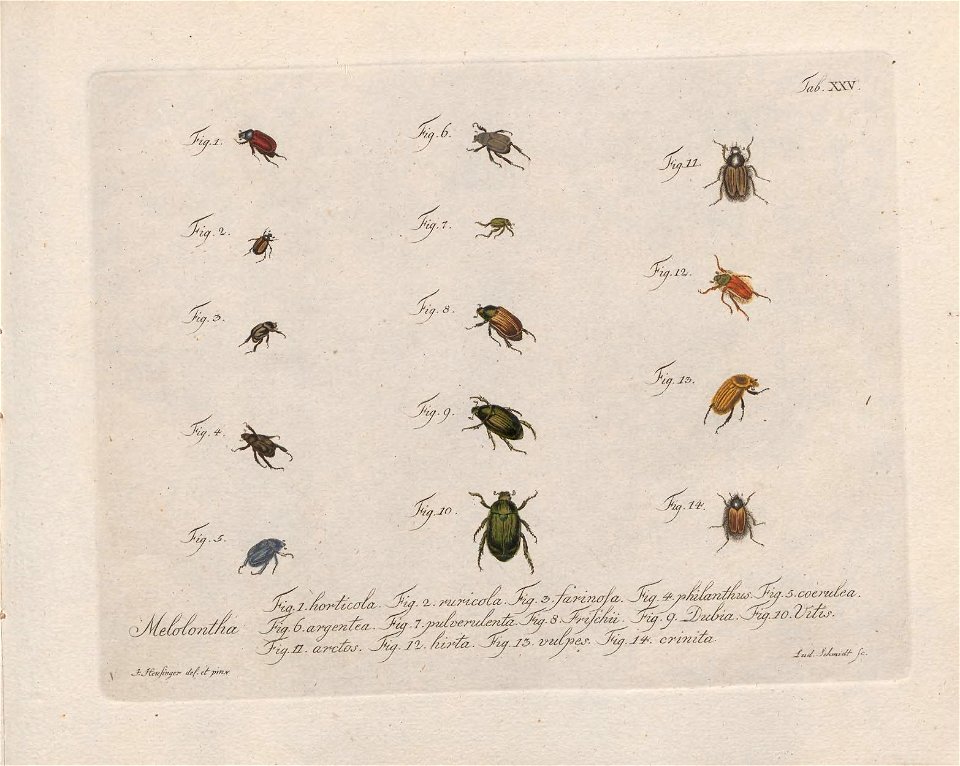 Tab. XXV.
Fig. 1.
Fig. 2.
Fig. 3.
Fig. 4.
Fig. 5.
Fig. 6.
Fig. 7.
Fig. 8.
Fig. 9.
Fig. 10.
Fig. 11.
Fig. 12.
Fig. 13.
Fig. 14.
Melolontha
Fig. 1. horticola. Fig. 2. ruricola. Fig. 3. farinosa. Fig. 4. philanthus. Fig. 5. coerulea.
Fig. 6. argentea. Fig. 7. pulverulenta. Fig. 8. Frischii. Fig. 9. Dubia. Fig. 10. Vitis.
Fig. 11. arctos. Fig. 12. hirta. Fig. 13. vulpes. Fig. 14. crinita
J. Heusinger del. et pinx
Lud. Schmidt sc.